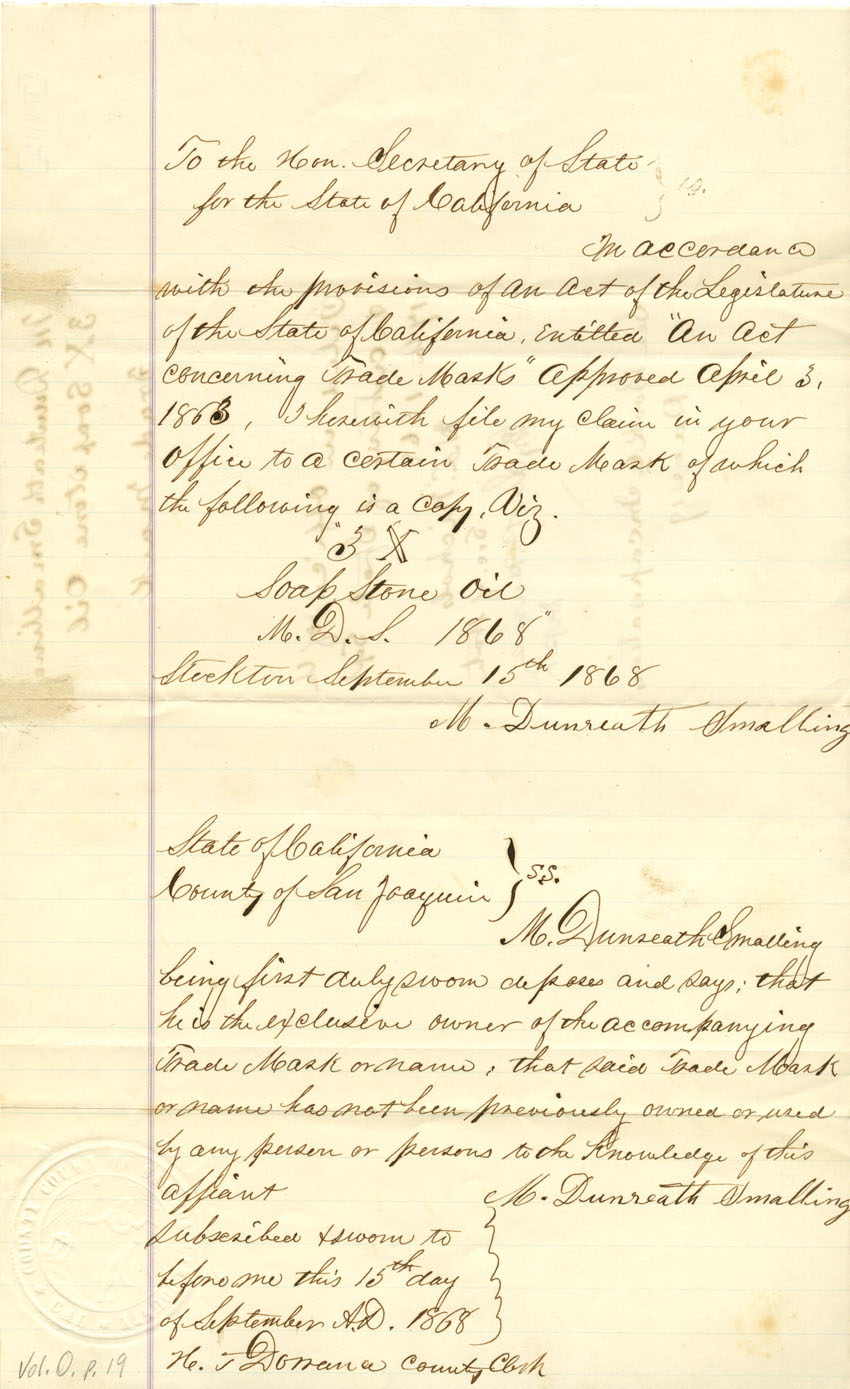 To the Hon. Secretary of State
for the State of California
In accordance
with the provisions of an Act of the Legislature
of the State of California, entitled "An Act
concerning Trade Marks" approved April 3,
1863, I herewith file my claim in your
Office to a certain Trade Mark of which
the following is a copy, Viz.
"3 X
Soap Stone Oil
M. D. S. 1868"
Stockton September 15th 1868
M. Dunreath Smalling
State of California
County of San Joaquin } S.S.
M. Dunreath Smalling
being first duly sworn deposes and says; that
he is the exclusive owner of the accompanying
Trade Mark or name; that said Trade Mark
or name has not been previously owned or used
by any person or persons to the knowledge of this
affiant
M. Dunreath Smalling
subscribed & sworn to
before me this 15th day
of September A.D. 1868
H. T Dorrance County Clerk
Vol. O, p. 19